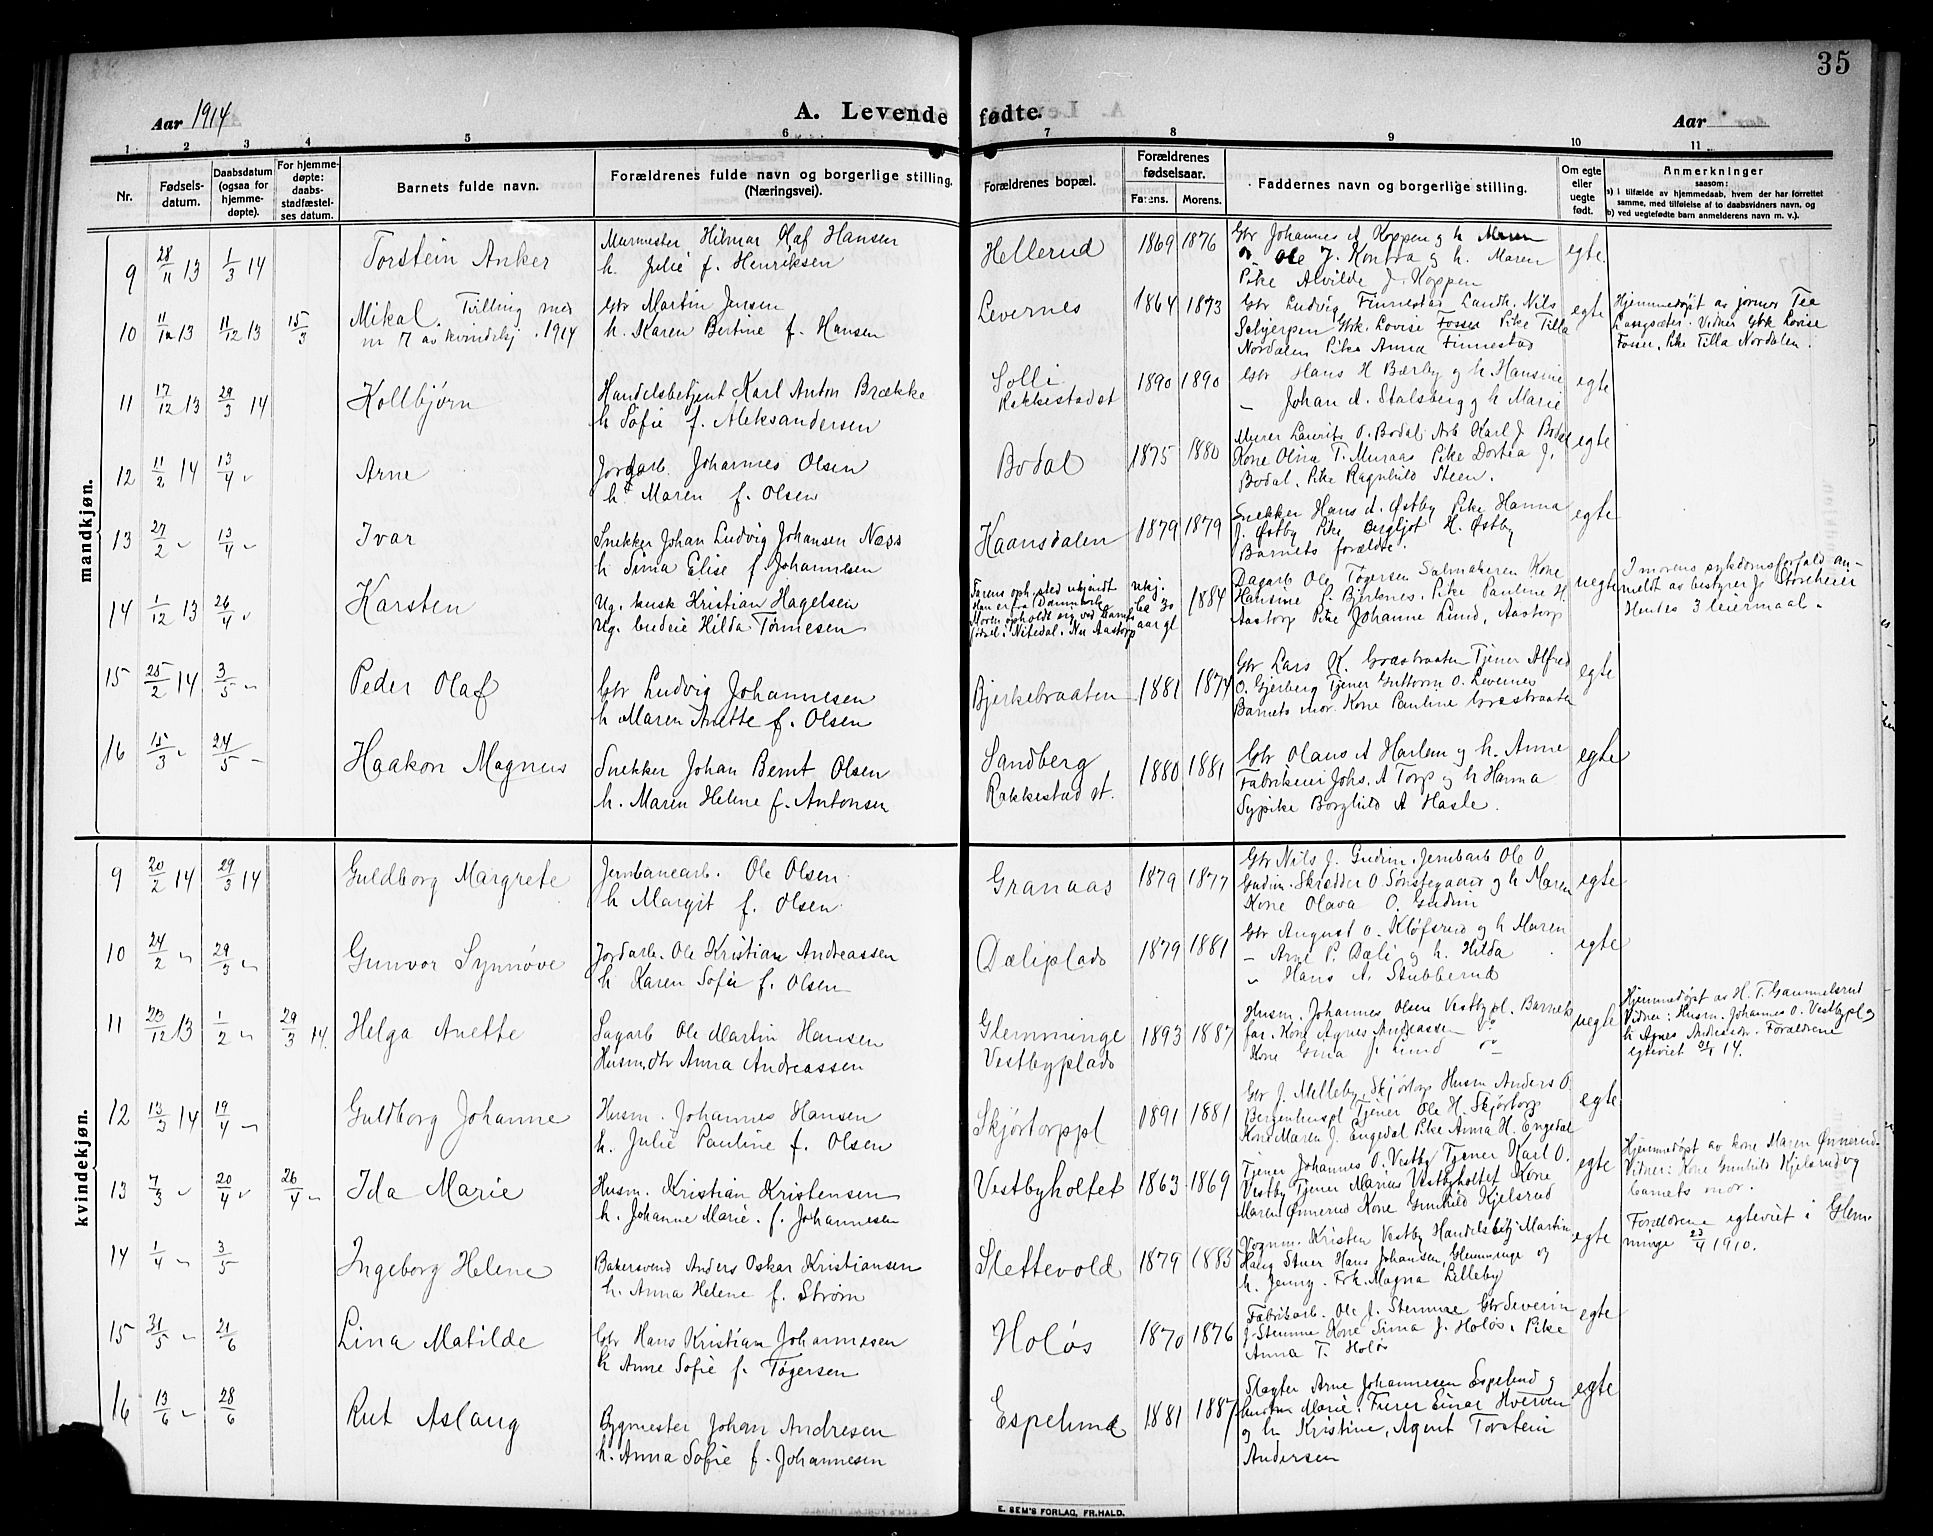 35
Aar 1914
A. Levende fødte.
Aar
1 2 3 4 5 6 7 8 9 10 11
Nr.
Fødsels-
datum.
Daabsdatum
(ogsaa for
hjemme-
døpte).
For hjemme-
døpte:
daabs-
stadfæstel-
ses datum.
Barnets fulde navn.
Forældrenes fulde navn og borgerlige stilling,
(Næringsvei).
Forældrenes bopæl.
Forældrenes
fødselsaar.
Farens. Morens.
Faddernes navn og borgerlige stilling.
Om egte
eller
uegte
født.
Anmerkninger
saasom:
a) i tilfælde av hjemmedaab, hvem der har forrettet
samme, med tilføielse af to daabsvidners navn, og
b) ved uegtefødte barn anmelderens navn m. v.).
mandkjøn.
9 28/11 13 1/3 14 Torstein Anker
Murmester Hilmar Olaf Hansen
h. Julie f. Henriksen
Hellerud 1869 1876
Gbr Johannes A Hoppen og h Maren
Ole J. Kontra og h. Maren
Pike Alvilde J. Hoppen
egte
10 11/12 13 11/12 13 15/3 Mikal. Tvilling med
nr 7 av kvindekj. 1914
Gbr Martin Jensen
h. Karen Bertine f. Hansen
Levernes 1864 1873
Gbr Ludvig Finnestad Landh. Nils
Schjerpen Gbk. Lovise Fosser Pike Tilla
Nordalen Pike Anna Finnestad
egte
Hjemmedøpt av jormor Tea
Langsæter. Vidner Gbk Lovise
Fosser, Pike Tilla Nordalen.
11 17/12 13 29/3 14 Kolbjørn
Handelsbetjent Karl Anton Brække
h Sofie f. Aleksandersen
Solli
Rakkestad st 1890 1890
Gbr Hans H Bærby og h Hansine
– Johan A. Stalsberg og h Marie
egte
12 11/2 14 13/4 " Arne
Jordarb. Johannes Olsen
h. Maren f. Olsen
Bodal 1875 1880
Murer Laurits O. Bodal Arb Karl J. Bodal
Kone Olina T. Muraas Pike Dortea J.
Bodal. Pike Ragnhild Steen.
egte
13 27/2 " 13/4 " Ivar
Snekker Johan Ludvig Johansen Næss
h Sina Elise f. Johannesen
Kaansdalen 1879 1879
Snekker Hans A. Østby Pike Hanna
J. Østby Pike Bergljot H. Østby
Barnets forældre.
egte
14 1/12 13 26/4 " Karsten
Ug. kusk Kristian Hagelsen
Ug. budeie Hilda Tønnesen
Farens oph. sted ukjendt
Han er fra Danmark
Moren opholdt sig ved barnets
fødsel i Nitedal, Nu Aastorp
ukj.
ca 30
aar gl 1884
Dagarb Ole Tøgersen Salmakeren Kone
Hansine L. Bjerknes. Pike Pauline H.
Aastorp Pike Johanne Lund, Aastorp
uegte
I morens sykdomsforfald an-
meldt av bestyrer J. Storeheier
Hendes 3 leiermaal.
15 25/2 14 3/5 " Peder Olaf
Gbr Ludvig Johannesen
h Maren Anette f. Olsen
Bjerkebraaten 1881 1874
Gbr Lars K. Græsbraaten Tjener Alfred
O. Gjerberg Tjener Guttorm O. Levernes
Barnets mor. Kone Pauline Græsbraaten
egte
16 15/3 " 24/5 – Haakon Magnus
Snekker Johan Bernt Olsen
h. Maren Helene f. Antonsen
Sandberg
Rakkestad st. 1880 1881
Gbr Olaus A Harlem og h. Anne
Fabrikeier Johs. A Torp og h Hanna
Sypike Borghild A Hasle.
egte
kvindekjøn.
9 20/2 14 29/3 14 Guldborg Margrete
Jernbanearb. Ole Olsen
h Margit f. Olsen
Granaas 1879 1877
Gbr Nils J. Gudim. Jernbarb Ole O
Gudim. Skrædder O. Sønstegaard og h Maren
Kone Olava O. Gudim
egte
10 24/2 " 29/3 " Gunvor Synnøve
Jordarb. Ole Kristian Andreassen
h Karen Sofie f. Olsen
Dæliplads 1879 1881
Gbr August O. Kløfsrud og h Maren
– Arne P. Dæli og h. Hilda
" Hans A. Stubberud
egte
11 23/12 13 1/2 " 29/3 14. Helga Anette
Sagarb Ole Martin Hansen
Husm.dtr Anna Andreassen
Glemminge
Vestbyplads 1893 1887
Husm. Johannes Olsen Vestbypl. Barnets
far. Kone Agnes Andreassen
Kone Gina J. Lund
uegte
Hjemmedøpt av H. T. Gammelsrud
Vidner: Husm. Johannes O. Vestbypl og
h Agnes Andersson. Forældrene
egteviet 21/5 14.
12 13/3 14 19/4 " Guldborg Johanne
Husm. Johannes Hansen
h. Julie Pauline f. Olsen
Skjørtorppl 1891 1881
Gbr J. Melleby, Skjørtorp Husm Anders O.
Bergenhuspl Tjener Ole H. Skjørtorp
Kone Maren J. Engedal Pike Anna H. Engedal
egte
13 7/3 " 20/4 " 26/4 " Ida Marie
Husm. Kristian Kristensen
h. Johanne Marie. f. Johannesen
Vestbyholtet 1863 1869
Tjener Johannes O. Vestby Tjener Karl O.
Vestby Tjener Marius Vestbyholtet Kone
Maren Ønnerud Kone Gunhild Kjelsrud
egte
Hjemmedøpt av kone Maren Ønnerud.
Vidner: Kone Gunhild Kjelsrud og
barnets mor.
14 1/4 " 3/5 Ingeborg Helene
Bakersvend Anders Oskar Kristiansen
h. Anna Helene f. Strøm
Slettevold 1879 1883
Vognm. Kristen Vestby Handelsbetj Martin
Haug Stuer Hans Johansen, Glemminge og
h. Jenny. Frk. Magna Lilleby
egte
Forældrene egteviet i Glem-
minge 23/4 1910.
15 31/5 " 21/6 Lina Matilde
Gbr Hans Kristian Johannesen
h Anne Sofie f. Tøgersen
Holøs 1870 1876
Fabrikarb. Ole J. Stemme Gbr Severin
J. Stemme Kone Sina J. Holøs. Pike
Anna T. Holøs
egte
16 13/6 " 28/6 Rut Aslaug
Bygmester Johan Andresen
h. Anna Sofie f. Johannesen
Espelund 1881 1887
Slagter Arne Johannesen Espelund og
hustru Marie. Furer Einar Hverven
og h Kristine, Agent Torstein
Andersen
egte
E. SEM'S FORLAG, FR.HALD.